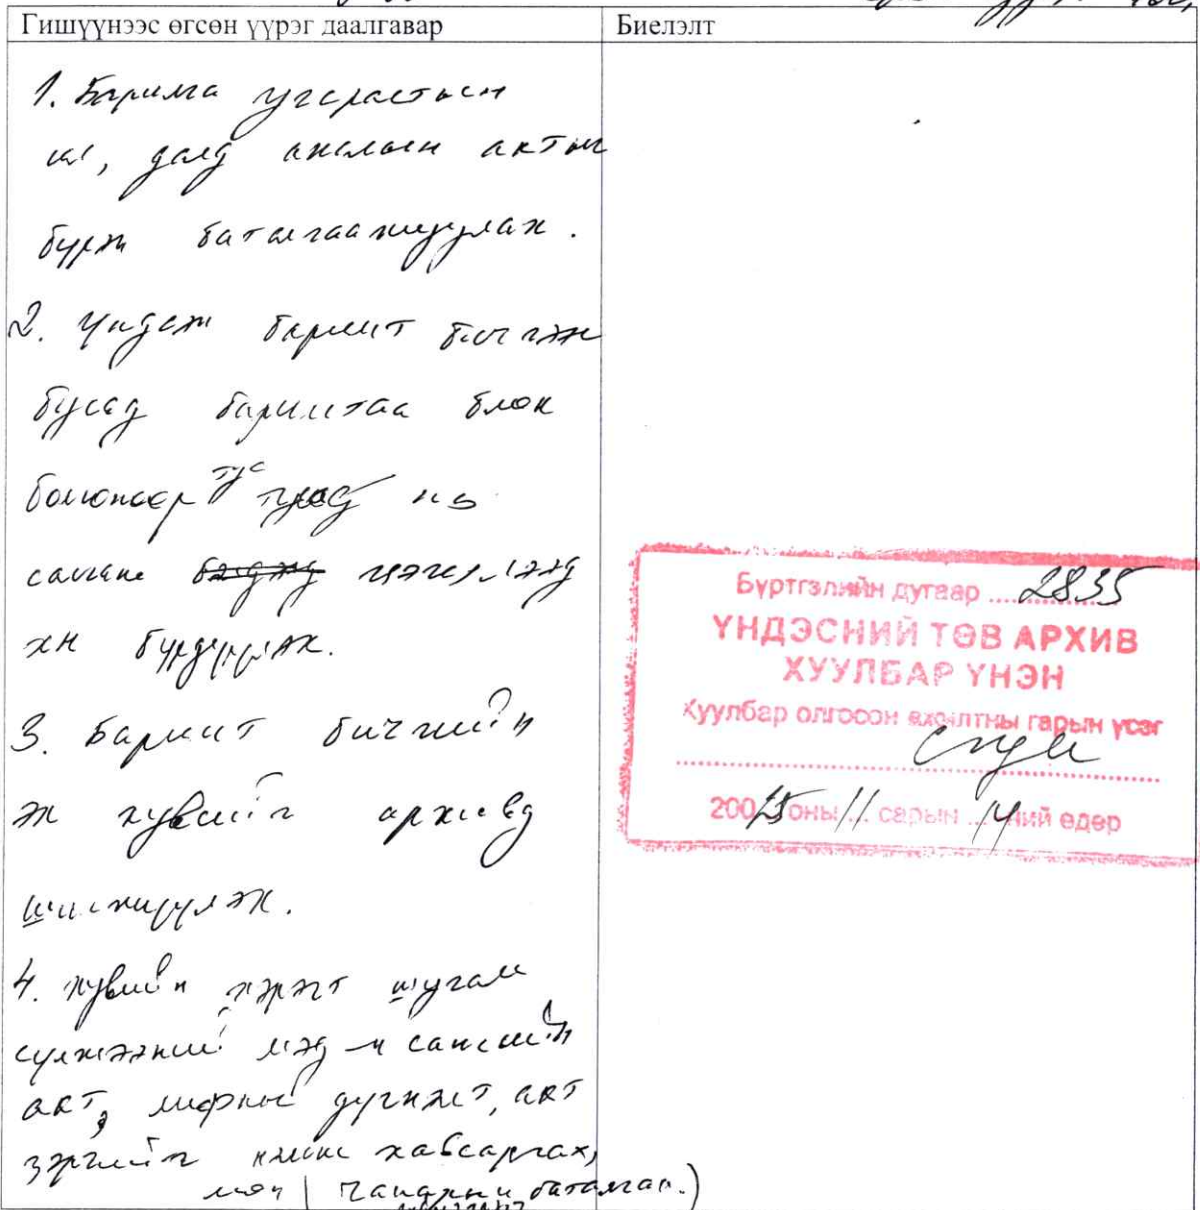 Гишүүнээс өгсөн үүрэг даалгавар
Биелэлт
1. Барилга угсралтын
далд ажлын актыг
бүрэн баталгаажуулах.
2. Үндсэн баримт бичгэн
бусад баримтаа блок
болгоноор тус нь
салган
хн бүрдүүлэх.
3. Баримт бичгийн
эх хувийг архивд
шилжүүлэх.
4. хувийн хэрэгт шугам
сүлжээний мэд-н сангийн
акт, лифтний дүгнэлт, акт
зэргийг нэмж хавсаргах,
мөн (чанарын баталгаа.)
Бүртгэлийн дугаар ..... 2835
ҮНДЭСНИЙ ТӨВ АРХИВ
ХУУЛБАР ҮНЭН
Хуулбар олгосон ажилтны гарын үсэг
200 15 оны 11 сарын 14 ний өдөр